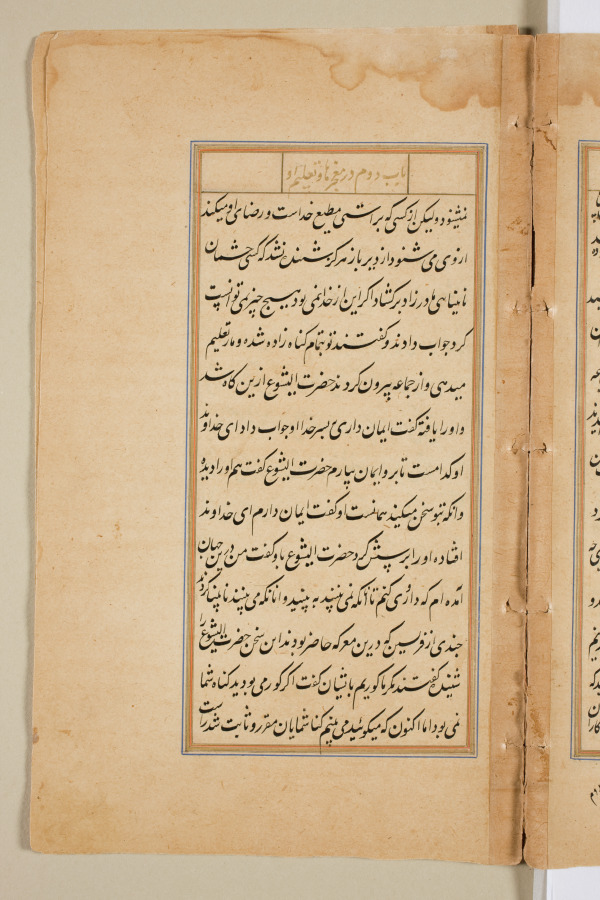 باب دوم در معجزها و تعلیم او
نمیشنود ولیکن از کسی که براستی مطیع خداست و رضای او میکند
از وی می شنود از دیر باز هرگز شنیده نشد که کسی چشمان
نابینای مادرزاد برگشاد اگر این از خدا نمی بود هیچ چیز نمی توانست
کرد جواب دادند و گفتند تو تمام گناه زاده شده و ما را تعلیم
میدهی و از جماعه بیرون کردند حضرت ایشوع ازین آگاه شد
و او را یافته گفت ایمان داری به پسر خدا او جواب داد ای خداوند
او کدامست تا برو ایمان بیارم حضرت ایشوع گفت هم او را دیدهٔ
و آنکه بتو سخن میکند همانست او گفت ایمان دارم ای خداوند
افتاده او را پرستش کرد حضرت ایشوع باو گفت من درین جهان
آمده ام که داوری کنم تا آنکه نمی بینند به بینند و آنانکه می بینند نابینا گردند
چندی از فریسین که درین معرکه حاضر بودند این سخن حضرت ایشوع را
شنیده گفتند مگر ما کوریم باینان گفت اگر کور می بودید گناه شما
نمی بود اما اکنون که میگوئید می بینیم گناه شمایان مقرر و ثابت شد راست